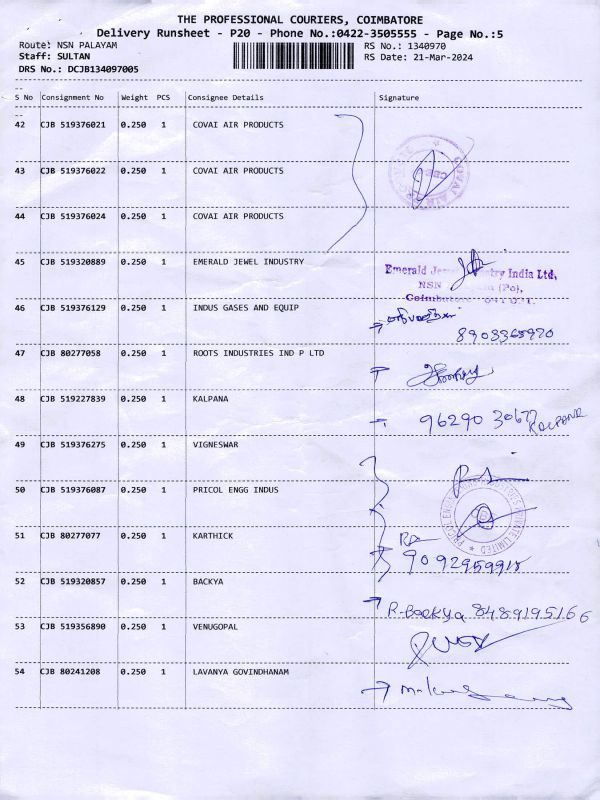 THE PROFESSIONAL COURIERS, COIMBATORE
Delivery Runsheet - P20 - Phone No.:0422-3505555 - Page No.:5
Route: NSN PALAYAM RS No.: 1340970
Staff: SULTAN RS Date: 21-Mar-2024
DRS No.: DCJB134097005
S No Consignment No Weight PCS Consignee Details Signature
42 CJB 519376021 0.250 1 COVAI AIR PRODUCTS
43 CJB 519376022 0.250 1 COVAI AIR PRODUCTS
44 CJB 519376024 0.250 1 COVAI AIR PRODUCTS
45 CJB 519320889 0.250 1 EMERALD JEWEL INDUSTRY
Emerald Jewel Industry India Ltd,
NSN (Po),
46 CJB 519376129 0.250 1 INDUS GASES AND EQUIP
8903365970
47 CJB 80277058 0.250 1 ROOTS INDUSTRIES IND P LTD
48 CJB 519227839 0.250 1 KALPANA
96290 30677 KALPANA
49 CJB 519376275 0.250 1 VIGNESWAR
50 CJB 519376087 0.250 1 PRICOL ENGG INDUS
51 CJB 80277077 0.250 1 KARTHICK
52 CJB 519320857 0.250 1 BACKYA
R. Backya 8489195166
53 CJB 519356890 0.250 1 VENUGOPAL
54 CJB 80241208 0.250 1 LAVANYA GOVINDHANAM